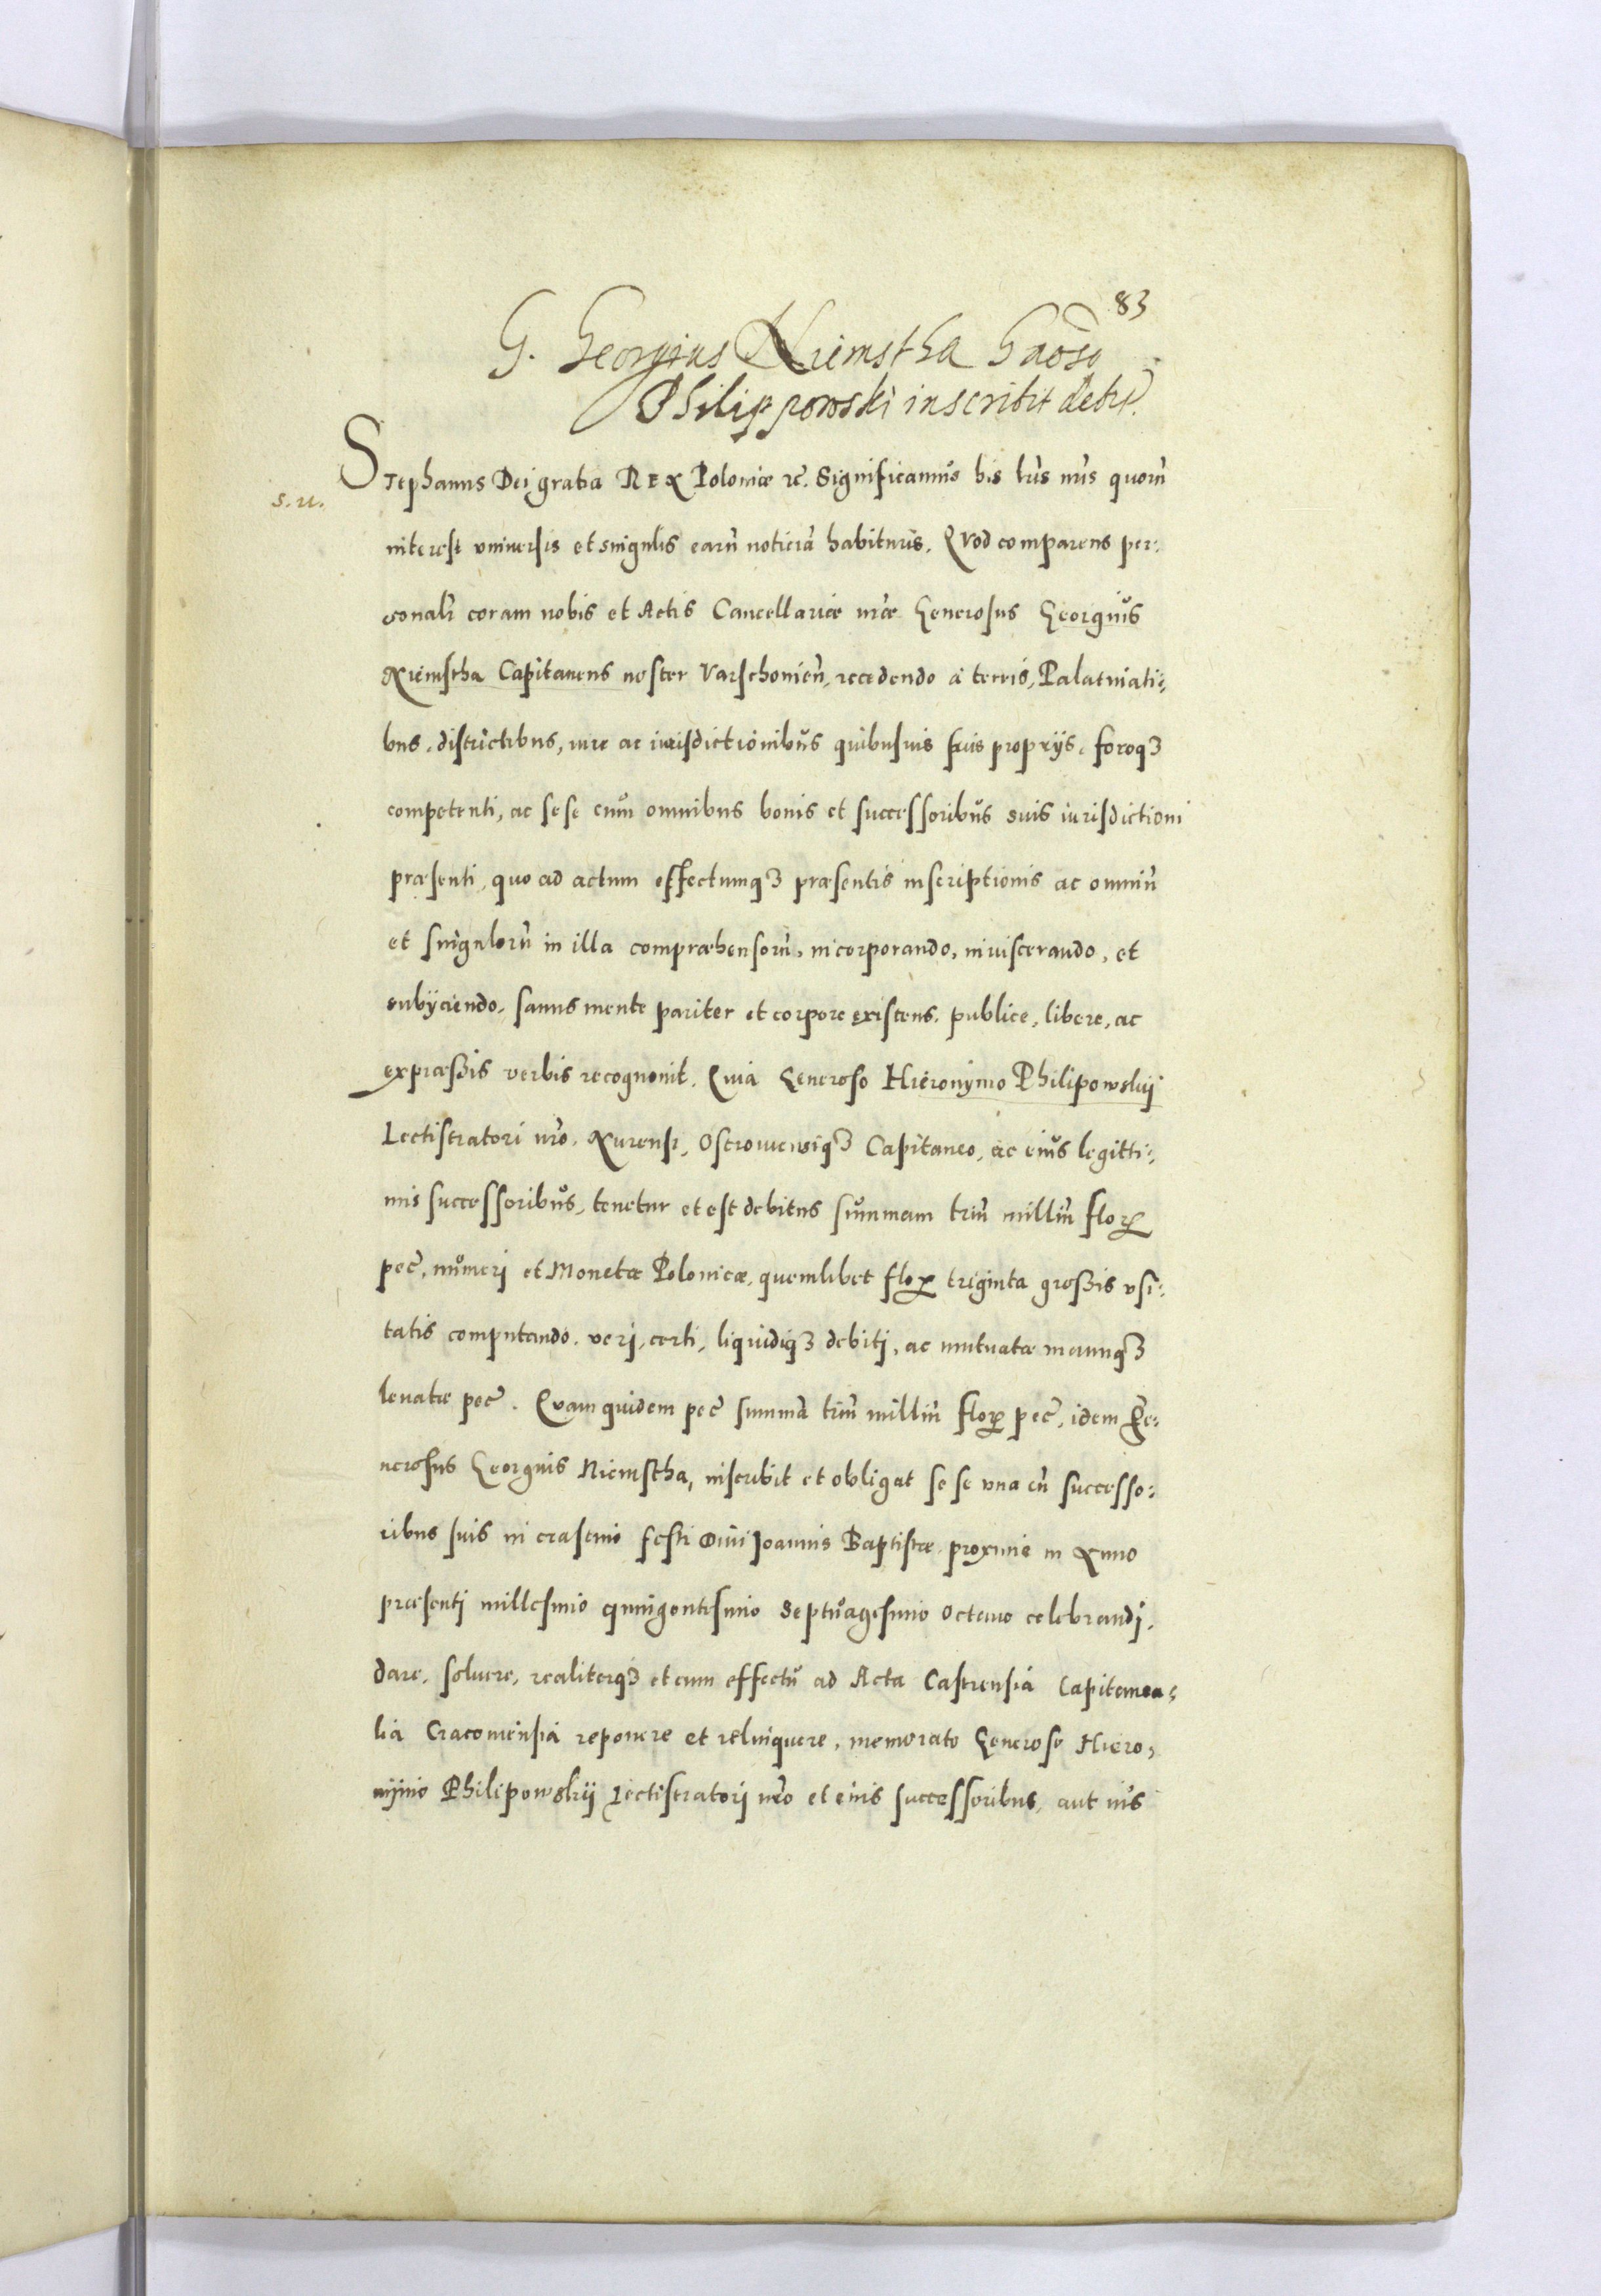 83
G. Georgius Niemstha Gnoso
Philippowski inscribit debit.
Stephanus Dei gratia REX Poloniæ ꝛc̃. Significamus his lr̃is nr̃is quorũ
s. u.
interest vniuersis et singulis earũ noticiã habituris. Quod comparens per:
sonalr̃ coram nobis et Actis Cancellariæ nr̃æ Generosus Georgius
Niemstha Capitaneus noster Varschouien̄, recedendo à terris, Palatinati:
bus, districtibus, iure ac iurisdictionibus quibusuis suis proprijs, foroqꝫ
competenti, ac sese cum omnibus bonis et successoribus suis iurisdictioni
præsenti, quo ad actum effectumqꝫ præsentis inscriptionis ac omniũ
et singulorũ in illa compræhensorũ, incorporando, inuiscerando, et
subijciendo, sanus mente pariter et corpore existens, publice, libere, ac
expræssis verbis recognouit. Quia Generoso Hieronymo Philipowskij
Lectistratori nr̃o, Nurensi, Ostrouiensiqꝫ Capitaneo, ac eius legitti:
mis successoribus, tenetur et est debitus summam triũ milliũ floꝝ
pec̃, numeri et Monetæ Polonicæ, quemlibet floꝝ triginta grossis vsi:
tatis computando, veri, certi, liquidiqꝫ debiti, ac mutuatæ manuqꝫ
leuatæ pec̃. Quam quidem pec̃ summã triũ milliũ floꝝ pec̃, idem Ge:
nerosus Georgius Niemstha, inscribit et obligat se se vna cũ successo:
ribus suis in crastino festi Diui Joannis Baptistæ proxime in Anno
præsenti millesimo quingentesimo Septuagesimo octauo celebrandj,
dare, soluere, realiterqꝫ et cum effectu ad Acta Castrensia Capitanea:
lia Cracouiensia reponere et relinquere, memorato Generoso Hiero:
nijmo Philipowskij Lectistratorj nr̃o et eius successoribus, aut nis